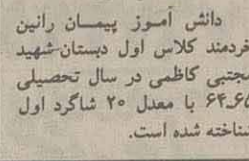 دانش آموز پیمان رانین
خردمند کلاس اول دبستان شهید
مجتبی کاظمی در سال تحصیلی
۶۴ـ۶۵ با معدل ۲۰ شاگرد اول
شناخته شده است.